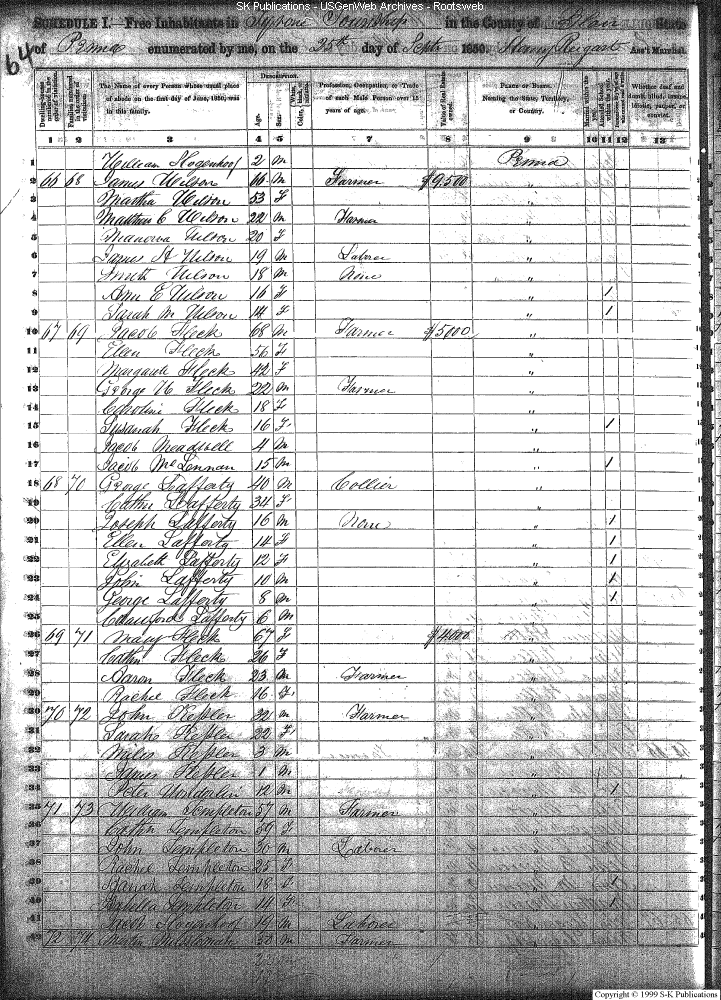 SK Publications - USGenWeb Archives - Rootsweb
SCHEDULE I.—Free Inhabitants in Township in the County of Blair State
of Penna enumerated by me, on the 25th day of Sept 1850. Ass't Marshal.
64
Dwelling-houses numbered in the order of visitation. Families numbered in the order of visitation. The Name of every Person whose usual place of abode on the first day of June, 1850, was in this family. Description. Age. Sex. Color Profession, Occupation, or Trade of each Male Person over 15 years of age. Value of Real Estate owned. Place of Birth. Naming the State, Territory, or Country. Married within the year. Whether deaf and dumb, blind, insane, idiotic, pauper, or convict.
1 2 3 4 5 6 7 8 9 10 11 12 13
1 William 2 M Penna
2 66 68 James Wilson 66 M Farmer $9,500 "
3 Martha Wilson 53 F "
4 Matthew C Wilson 22 M Farmer "
5 Wilson 20 F "
6 James H Wilson 19 M Laborer "
7 Smith Wilson 18 M None "
8 Ann E Wilson 16 F " 1
9 Sarah M Wilson 14 F " 1
10 67 69 Jacob Fleck 68 M Farmer $5000 "
11 Ellen Fleck 56 F "
12 Margaret Fleck 42 F "
13 George H Fleck 22 M Farmer "
14 Caroline Fleck 18 F "
15 Susanah Fleck 16 F " 1
16 Jacob 4 M "
17 Jacob McLennan 15 M " 1
18 68 70 George Lafferty 40 M Collier "
19 Cathn Lafferty 34 F "
20 Joseph Lafferty 16 M None " 1
21 Ellen Lafferty 14 F " 1
22 Elizabeth Lafferty 12 F " 1
23 John Lafferty 10 M " 1
24 George Lafferty 8 M " 1
25 Crawford Lafferty 6 M "
26 69 71 Mary Fleck 67 F $4000 "
27 Cathn Fleck 26 F "
28 Aaron Fleck 23 M Farmer "
29 Rachel Fleck 16 F "
30 70 72 John Kessler 32 M Farmer "
31 Sarah Kessler 22 F "
32 Miles Kessler 3 M "
33 James Kessler 1 M "
34 Peter 12 M " 1
35 71 73 William Templeton 57 M Farmer "
36 Cathn Templeton 59 F "
37 John Templeton 30 M Laborer "
38 Rachel Templeton 25 F "
39 Templeton 18 F " 1
40 Templeton 14 F " 1
41 Jacob 19 M Laborer "
42 72 74 Martin 50 M Farmer "
Copyright © 1999 S-K Publications